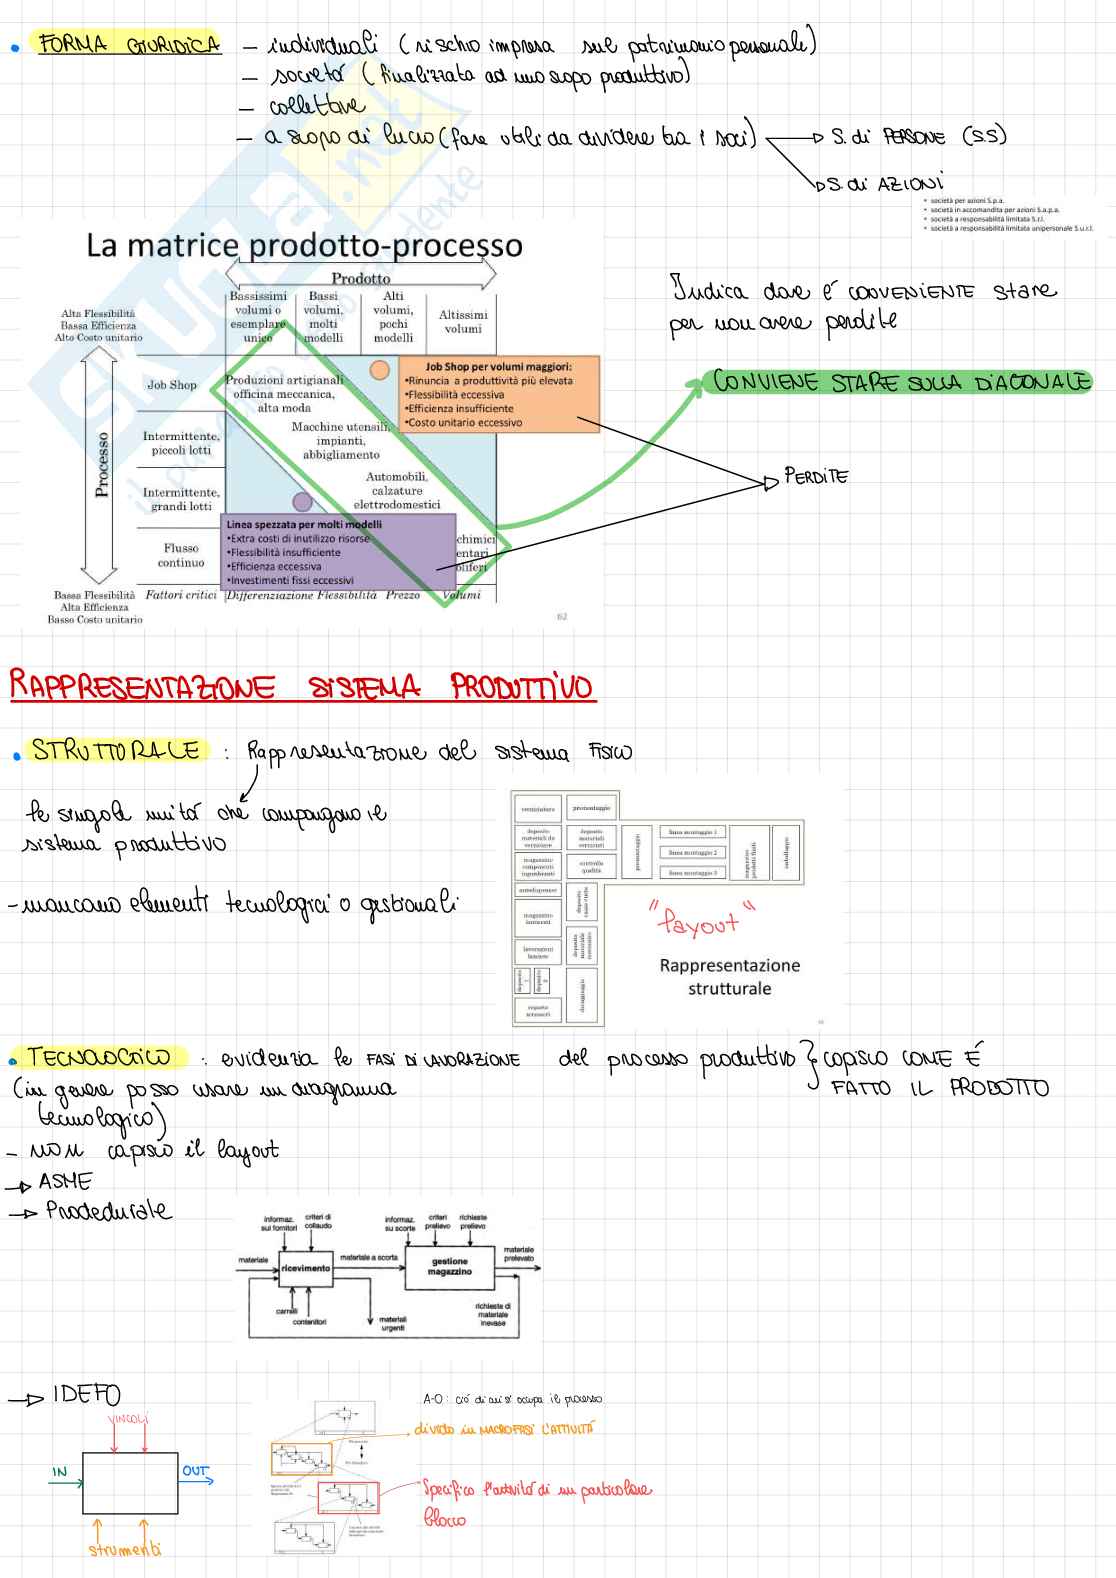 • FORMA GIURIDICA – individuali (rischio impresa sul patrimonio personale)
– società (finalizzata ad uno scopo produttivo)
– collettive
– a scopo di lucro (fare utili da dividere tra i soci) → S. di PERSONE (S.S)
→ S. di AZIONI
• società per azioni S.p.a.
• società in accomandita per azioni S.a.p.a.
• società a responsabilità limitata S.r.l.
• società a responsabilità limitata unipersonale S.u.r.l.
SKUOLA.net
La matrice prodotto-processo
Prodotto
Alta Flessibilità
Bassa Efficienza
Alto Costo unitario
Bassissimi volumi o esemplare unico
Bassi volumi, molti modelli
Alti volumi, pochi modelli
Altissimi volumi
Processo
Job Shop
Produzioni artigianali officina meccanica, alta moda
Job Shop per volumi maggiori:
•Rinuncia a produttività più elevata
•Flessibilità eccessiva
•Efficienza insufficiente
•Costo unitario eccessivo
Intermittente, piccoli lotti
Macchine utensili, impianti, abbigliamento
Intermittente, grandi lotti
Automobili, calzature elettrodomestici
Linea spezzata per molti modelli
•Extra costi di inutilizzo risorse
•Flessibilità insufficiente
•Efficienza eccessiva
•Investimenti fissi eccessivi
Flusso continuo
chimici
entari
oliferi
Bassa Flessibilità
Alta Efficienza
Basso Costo unitario
Fattori critici Differenziazione Flessibilità Prezzo Volumi
62
Indica dove é CONVENIENTE stare
per non avere perdite
CONVIENE STARE SULLA DIAGONALE
PERDITE
RAPPRESENTAZIONE SISTEMA PRODUTTIVO
• STRUTTURALE : Rappresentazione del sistema FISICO
le singole unità che compongono il
sistema produttivo
– mancano elementi tecnologici o gestionali
verniciatura
premontaggio
deposito materiali da verniciare
deposito materiali verniciati
premontaggio
linea montaggio 1
linea montaggio 2
linea montaggio 3
magazzino prodotti finiti
imballaggio
magazzino componenti ingombranti
controllo qualità
magazzino
lavorazioni lamiere
"layout"
Rappresentazione
strutturale
• TECNOLOGICO : evidenzia le FASI DI LAVORAZIONE del processo produttivo } capisco COME É
FATTO IL PRODOTTO
(in genere posso usare un diagramma
tecnologico)
– NON capisco il layout
→ ASME
→ Prodedurale
informaz. sui fornitori
criteri di collaudo
informaz. su scorte
criteri prelievo
richieste prelievo
materiale
ricevimento
materiale a scorta
gestione magazzino
materiale prelevato
carrelli
contenitori
materiali urgenti
richieste di materiale inevase
→ IDEFO
VINCOLI
IN
OUT
strumenti
A-O : ció di cui si occupa il processo
divido in MACROFASI L'ATTIVITÁ
Specifico l'attività di un particolare
blocco